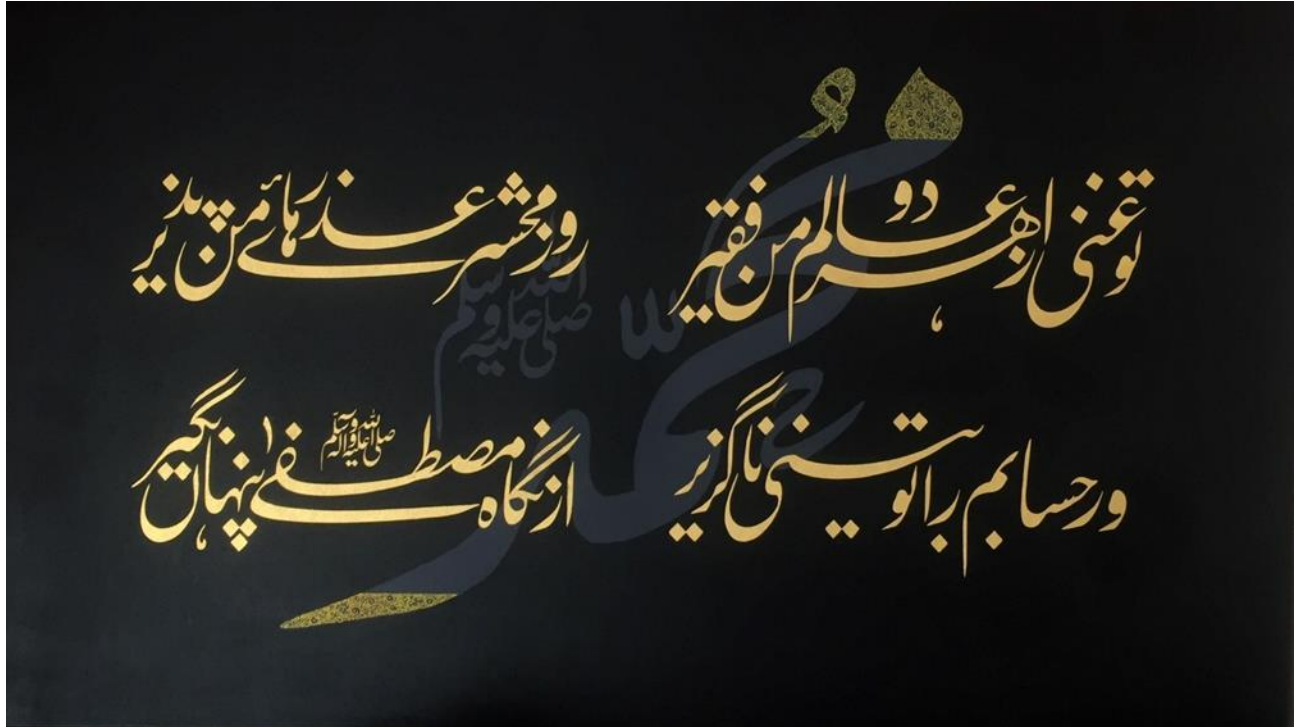 تو غنی از ہر دو عالم من فقیر
روز محشر عذر ہائے من پذیر
ور حسابم را تو بینی ناگزیر
از نگاہ مصطفیٰ صلی اللہ علیہ وآلہ وسلم پنہاں بگیر
محمدؐ
صلی اللہ علیہ وسلم